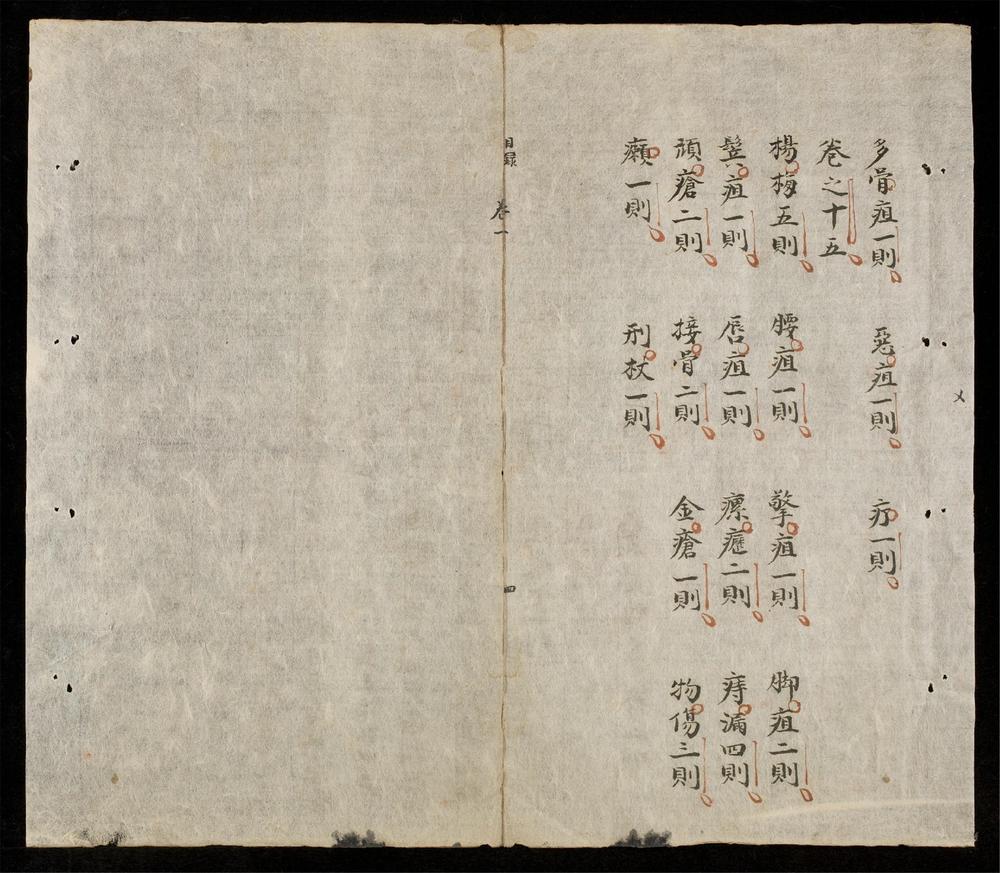 多骨疽一則 惡疽一則 疔一則
卷之十五
楊梅五則 腰疽一則 擎疽一則 脚疽二則
鬓疽一則 唇疽一則 瘰癧二則 痔漏四則
頑瘡二則 接骨二則 金瘡一則 物傷三則
癩一則 刑杖一則
目録 卷一 四